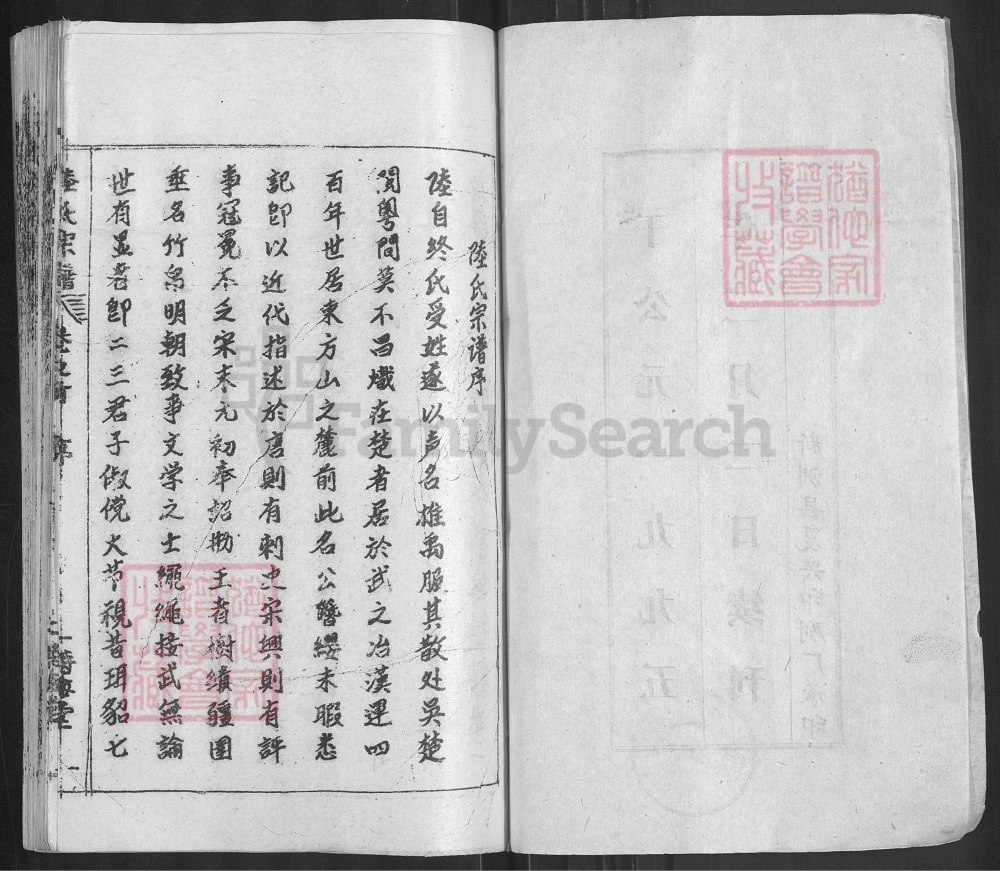 陸氏宗谱序
陸自終氏受姓遂以声名雄禹服其散处吳楚
閩粤間莫不昌熾在楚者居於武之冶漢運四
百年世居東方山之麓前此名公簪纓未暇悉
記卽以近代指述於唐則有刺史宋興則有評
事冠冕不乏宋末元初奉詔勤王者樹績疆圉
垂名竹帛明朝致事文学之士繩繩接武無論
世有显者卽二三君子俶傥大节視昔珥貂七
陸氏宗譜 卷之首 序
FamilySearch
譜學會
收藏
譜學會
收藏
公元一九九五
月 日续刊